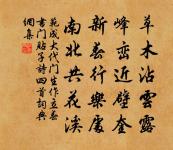 草木沾雲露
峰巒近壁奎
新春行樂處
南北共花溪
範成大代門生作立春
書門貼子詩四首詞典
網集